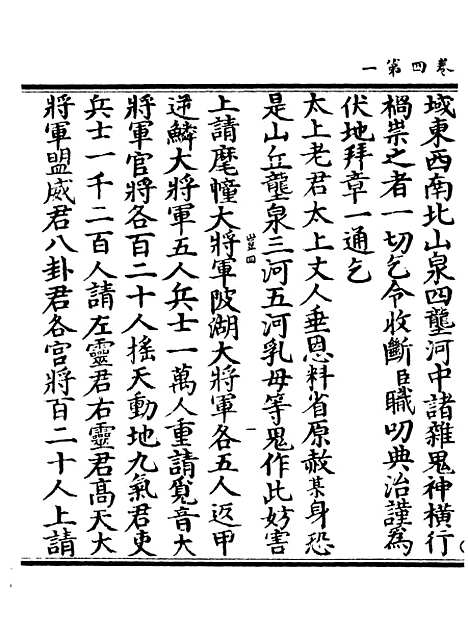 卷四第一
域東西南北山泉四壟河中諸雜鬼神橫行
禍祟之者一切乞令收斷臣職叨典治謹為
伏地拜章一通乞
太上老君太上丈人垂恩料省原赦某身恐
是山丘壟泉三河五河乳母等鬼作此妨害
上請麾幢大將軍陂湖大將軍各五人返甲
逆鱗大將軍五人兵士一萬人重請覧音大
將軍官將各百二十人搖天動地九氣君吏
兵士一千二百人請左靈君右靈君高天大
將軍盟威君八卦君各官將百二十人上請